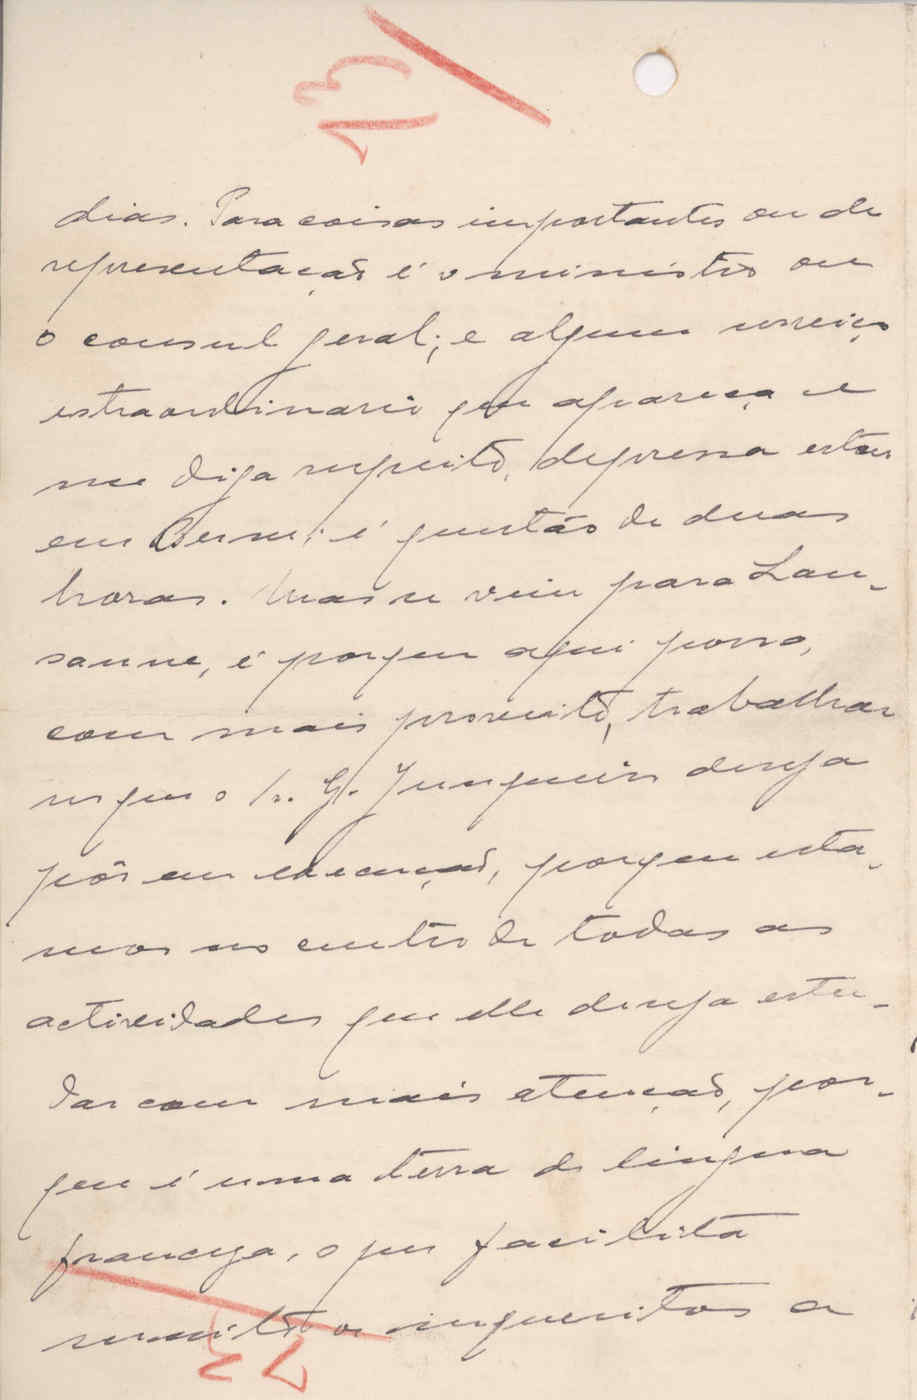 13
dias. Para coisas importantes ou de
representação é o ministro ou
o consul geral; e algum serviço
extraordinario que apareça e
me diga respeito, depressa estou
em Berne; é questão de duas
horas. Mas se vim para Lau-
sanne, é porque aqui posso,
com mais proveito, trabalhar
no que o Sr. G. Junqueiro deseja
pôr em execução, porque esta-
mos no centro de todas as
actividades que elle deseja estu-
dar com mais atenção, por-
que é uma terra de lingua
franceza, o que facilita
muito os inqueritos a
73